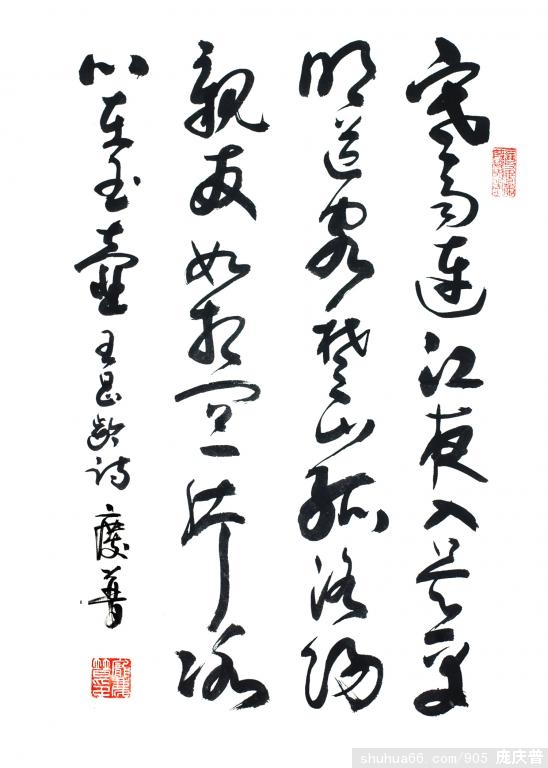 寒雨連江夜入吳平
明送客楚山孤洛陽
親友如相問一片冰
心在玉壺 王昌齡詩 慶普
shuhua66.com/905 庞庆普